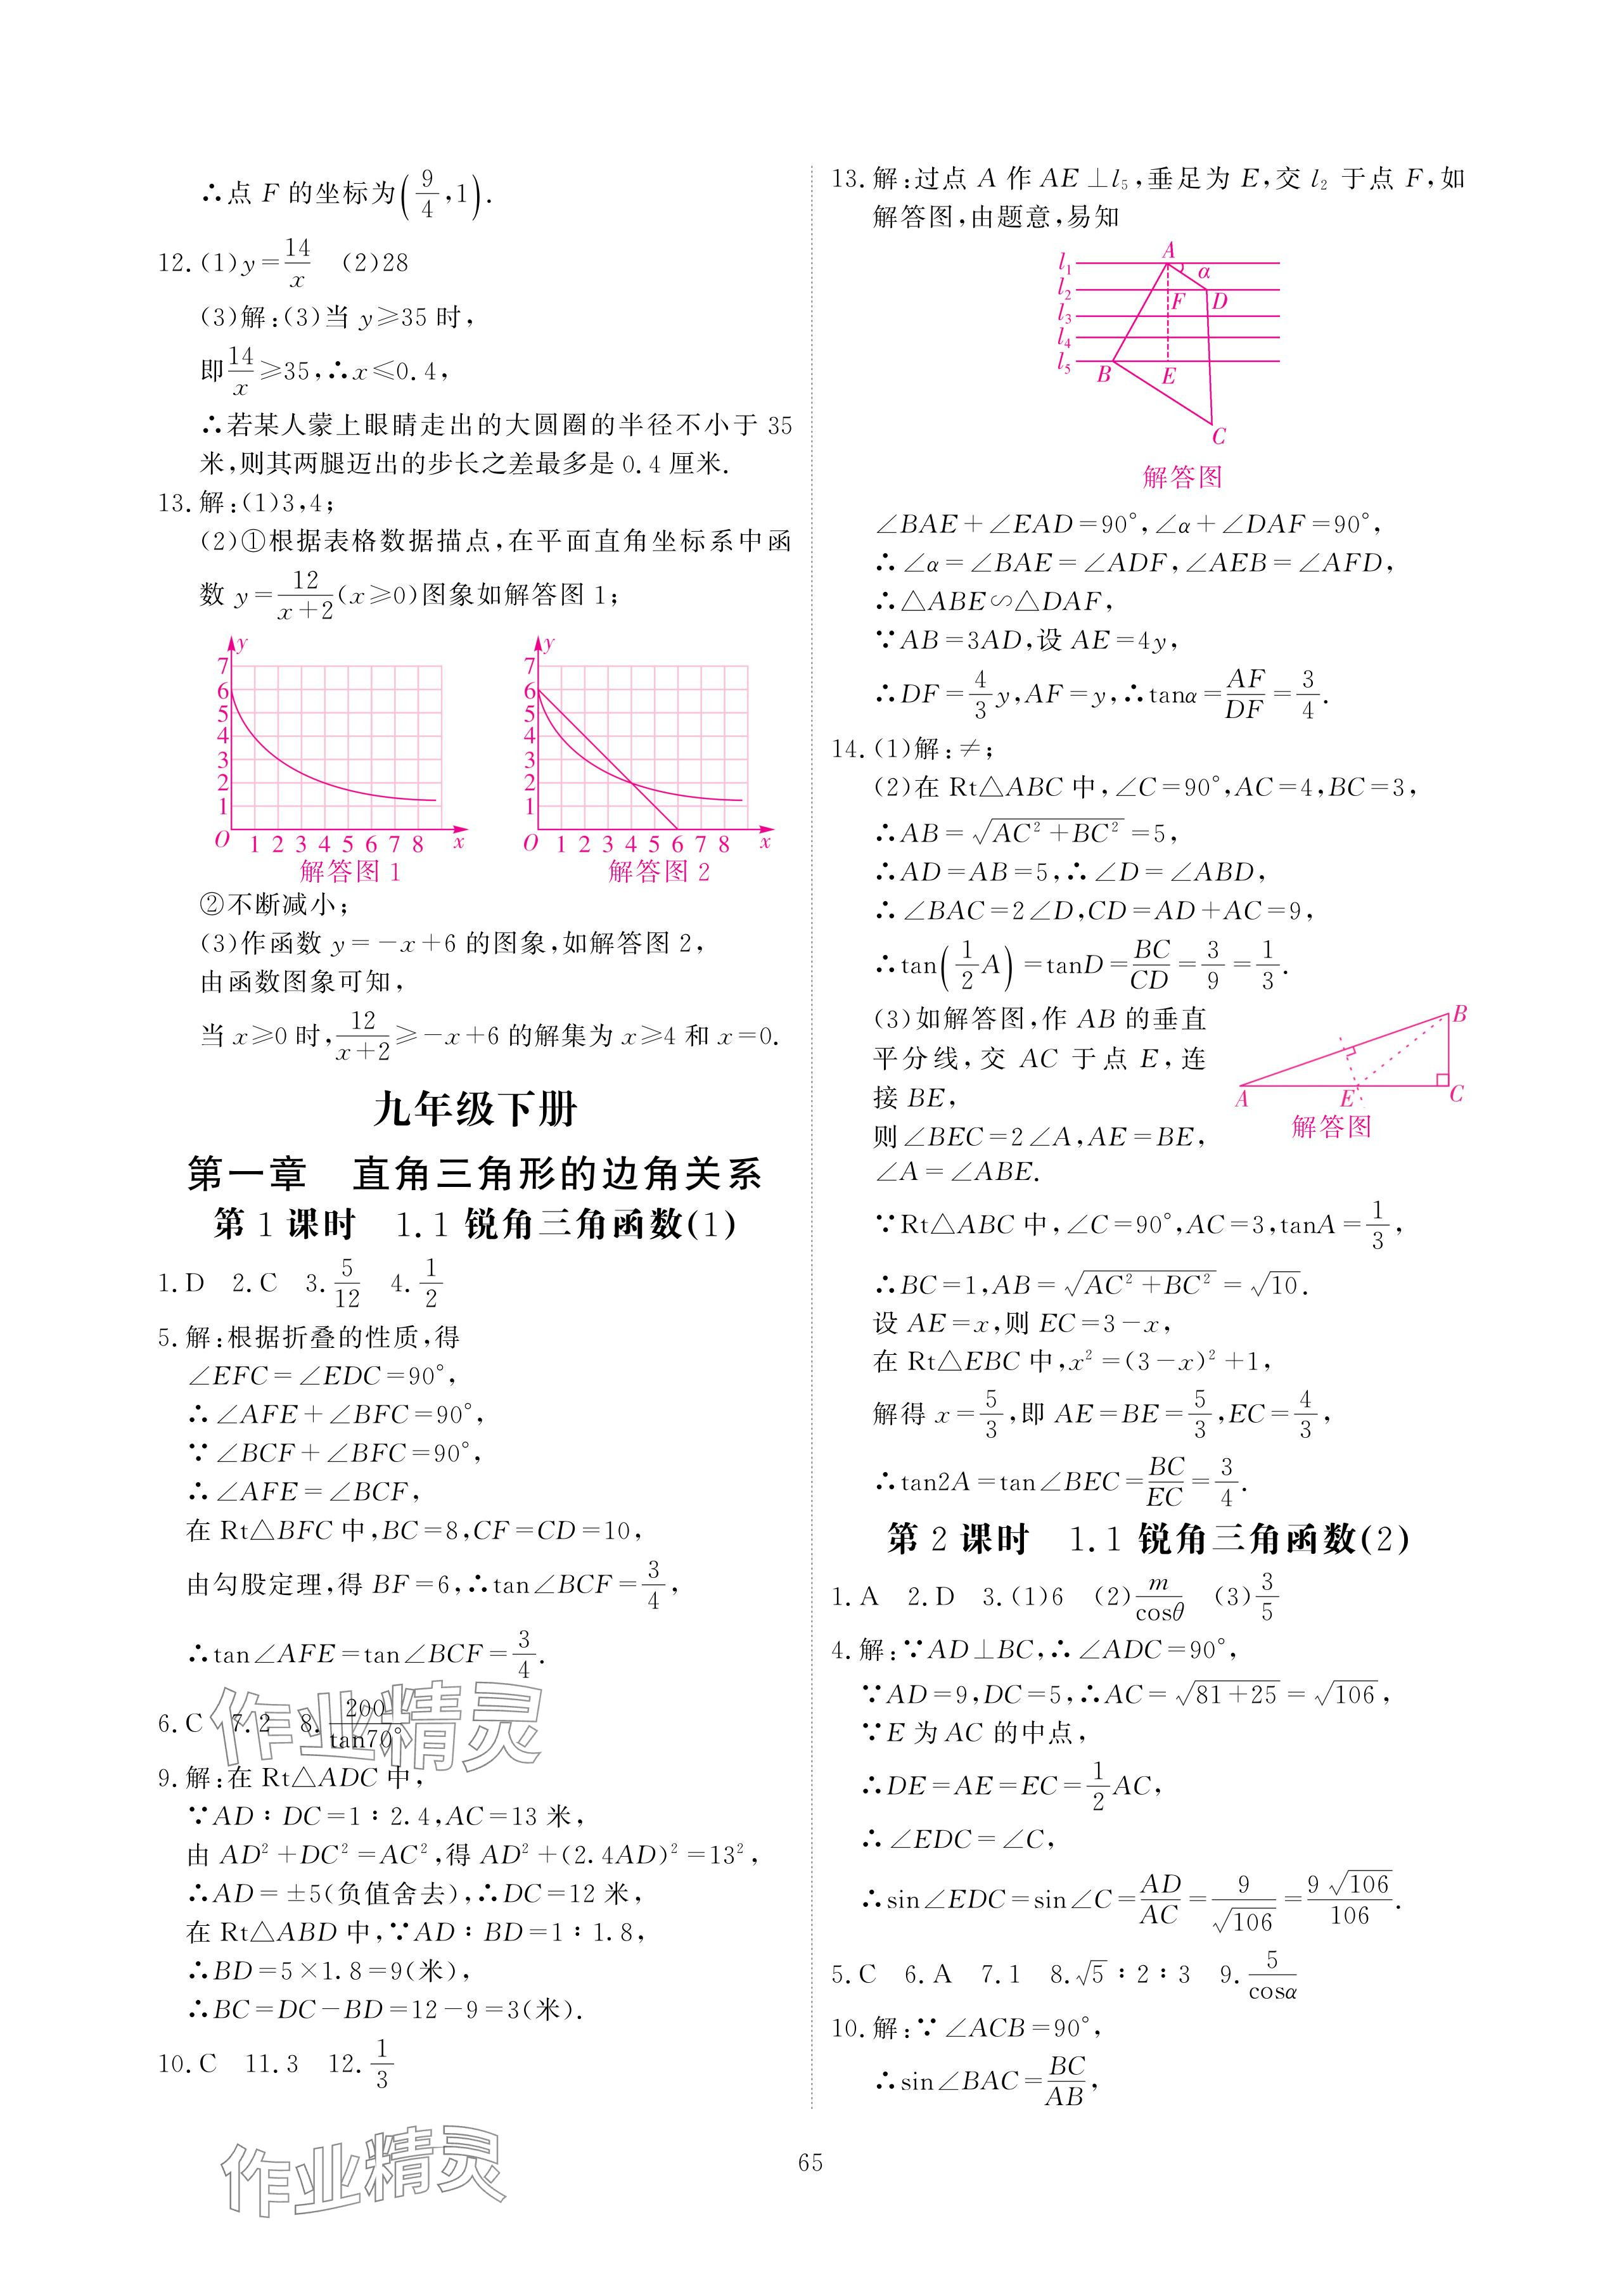 ∴点 F 的坐标为(9/4,1).
12.(1)y=14/x　(2)28
(3)解:(3)当 y≥35 时,
即14/x≥35,∴x≤0.4,
∴若某人蒙上眼睛走出的大圆圈的半径不小于 35
米,则其两腿迈出的步长之差最多是 0.4 厘米.
13.解:(1)3,4;
(2)①根据表格数据描点,在平面直角坐标系中函
数 y=12/(x+2)(x≥0)图象如解答图 1;
y
7
6
5
4
3
2
1
O 1 2 3 4 5 6 7 8 x
解答图 1
y
7
6
5
4
3
2
1
O 1 2 3 4 5 6 7 8 x
解答图 2
②不断减小;
(3)作函数 y=-x+6 的图象,如解答图 2,
由函数图象可知,
当 x≥0 时,12/(x+2)≥-x+6 的解集为 x≥4 和 x=0.
九年级下册
第一章　直角三角形的边角关系
第 1 课时　1.1 锐角三角函数(1)
1.D　2.C　3.5/12　4.1/2
5.解:根据折叠的性质,得
∠EFC=∠EDC=90°,
∴∠AFE+∠BFC=90°,
∵∠BCF+∠BFC=90°,
∴∠AFE=∠BCF,
在 Rt△BFC 中,BC=8,CF=CD=10,
由勾股定理,得 BF=6,∴tan∠BCF=3/4,
∴tan∠AFE=tan∠BCF=3/4.
6.C　7.2　8.200/tan70°
9.解:在 Rt△ADC 中,
∵AD∶DC=1∶2.4,AC=13 米,
由 AD²+DC²=AC²,得 AD²+(2.4AD)²=13²,
∴AD=±5(负值舍去),∴DC=12 米,
在 Rt△ABD 中,∵AD∶BD=1∶1.8,
∴BD=5×1.8=9(米),
∴BC=DC-BD=12-9=3(米).
10.C　11.3　12.1/3
13.解:过点 A 作 AE⊥l₅,垂足为 E,交 l₂ 于点 F,如
解答图,由题意,易知
A
l₁ α
l₂ F D
l₃
l₄
l₅ B E
C
解答图
∠BAE+∠EAD=90°,∠α+∠DAF=90°,
∴∠α=∠BAE=∠ADF,∠AEB=∠AFD,
∴△ABE∽△DAF,
∵AB=3AD,设 AE=4y,
∴DF=4/3y,AF=y,∴tanα=AF/DF=3/4.
14.(1)解:≠;
(2)在 Rt△ABC 中,∠C=90°,AC=4,BC=3,
∴AB=√(AC²+BC²)=5,
∴AD=AB=5,∴∠D=∠ABD,
∴∠BAC=2∠D,CD=AD+AC=9,
∴tan(1/2A)=tanD=BC/CD=3/9=1/3.
(3)如解答图,作 AB 的垂直
平分线,交 AC 于点 E,连
接 BE,
则∠BEC=2∠A,AE=BE,
∠A=∠ABE.
B
A E C
解答图
∵Rt△ABC 中,∠C=90°,AC=3,tanA=1/3,
∴BC=1,AB=√(AC²+BC²)=√10.
设 AE=x,则 EC=3-x,
在 Rt△EBC 中,x²=(3-x)²+1,
解得 x=5/3,即 AE=BE=5/3,EC=4/3,
∴tan2A=tan∠BEC=BC/EC=3/4.
第 2 课时　1.1 锐角三角函数(2)
1.A　2.D　3.(1)6　(2)m/cosθ　(3)3/5
4.解:∵AD⊥BC,∴∠ADC=90°,
∵AD=9,DC=5,∴AC=√(81+25)=√106,
∵E 为 AC 的中点,
∴DE=AE=EC=1/2AC,
∴∠EDC=∠C,
∴sin∠EDC=sin∠C=AD/AC=9/√106=9√106/106.
5.C　6.A　7.1　8.√5∶2∶3　9.5/cosα
10.解:∵∠ACB=90°,
∴sin∠BAC=BC/AB,
65
作业精灵
作业精灵